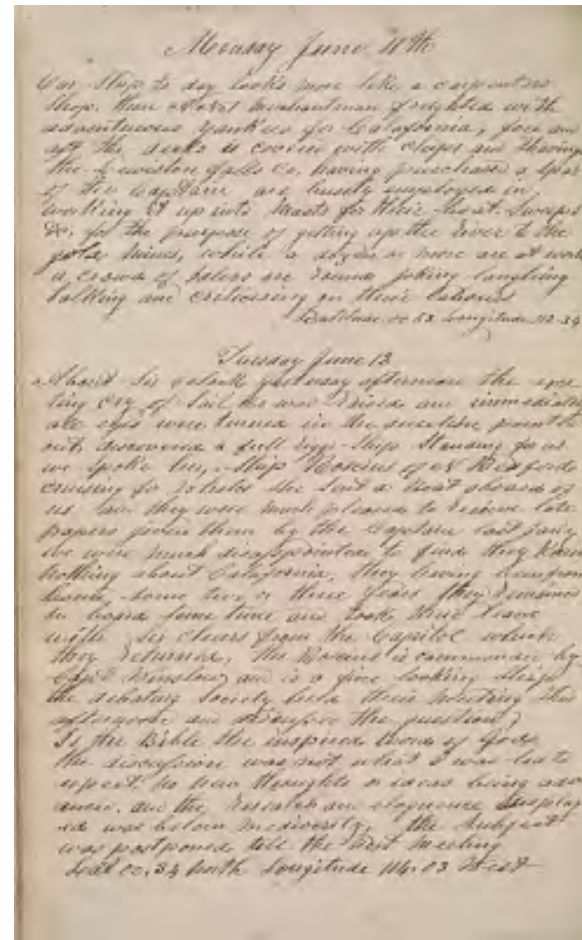 Monday June 11th
Our ship to day looks more like a carpenters
shop, than a merchantman freighted with
adventurous Yankees for Calafornia, fore and
aft the decks is covered with chips and shavings
the Lewiston Falls Co. having purchased a spar
of the Captain are busely employed in
working it up into Masts for their boat. Sweeps
&c. for the purpose of getting up the river to the
gold mines, while a dozen or more are at work
a crowd of are round joking laughing
talking and criticising on their labours
Latitude 00.53 Longitude 112.34
Tuesday June 12
About six oclock yesterday afternoon the exci
ting cry of Sail ho was raised and immediately
all eyes were turned in the direction pointed
out, discovered a full rigg Ship standing for us
we spoke her, Ship Roscius of N Bedford
cruising for she sent a boat aboard of
us and they were much pleased to receive late
papers given them by the Captain last Jany
we were much disappointed to find they knew
nothing about Calafornia, they having been from
home some two or three years they remained
on board some time and took their leave
with six cheers from the Capitol which
they returned, the Roscius is commanded by
Capt Winslow and is a fine looking Ship
the debating Society held their meeting this
afternoon and discussed the question,
Is the Bible the inspired word of God,
the discussion was not what I was led to
expect, no new thoughts or ideas being adv
anced, and the research and eloquence display
ed was below mediocrity, the subject
was postponed till the next meeting
Lat 00.34 North Longitude 114.03 West